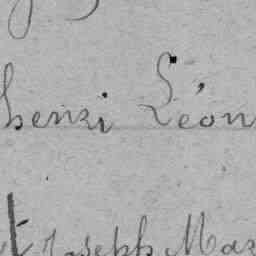 henri Léon
Joseph Maz